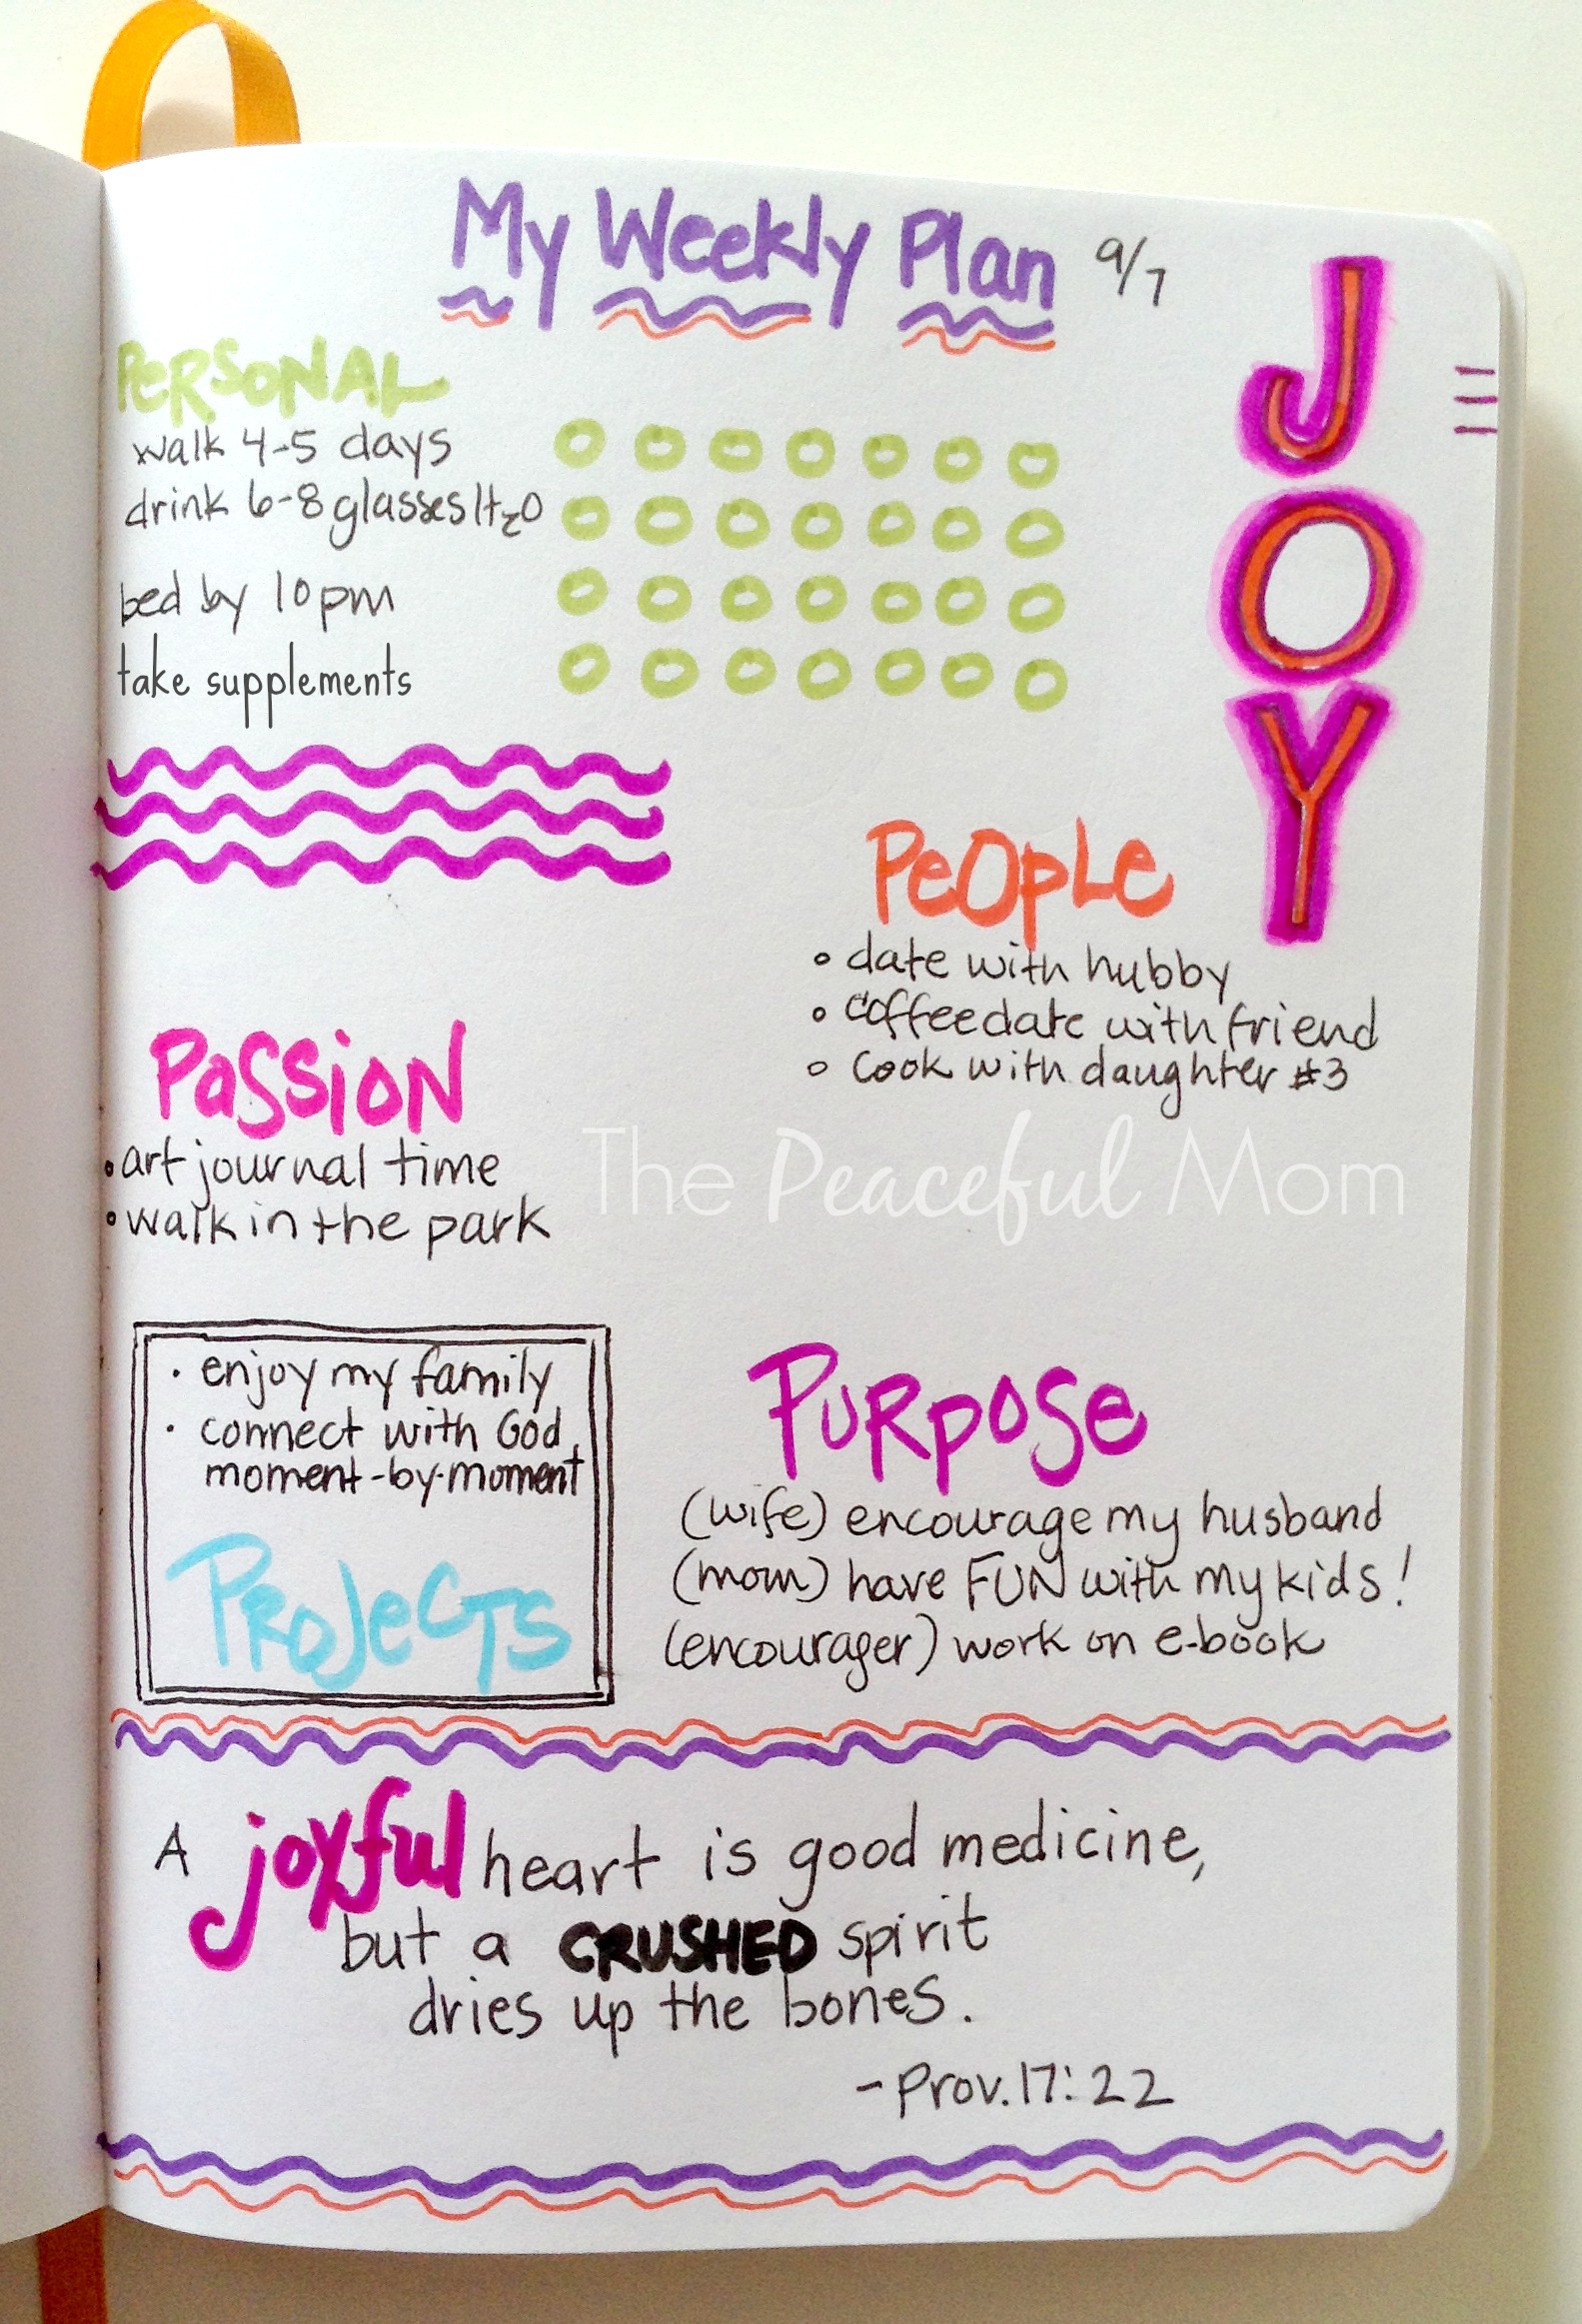 My Weekly Plan 9/7
JOY
PERSONAL
walk 4-5 days
drink 6-8 glasses H2O
bed by 10pm
take supplements
PEOPLE
• date with hubby
• coffee date with friend
• cook with daughter #3
PASSION
• art journal time
• walk in the park
The Peaceful Mom
• enjoy my family
• connect with God
moment-by-moment
PROJECTS
PURPOSE
(wife) encourage my husband
(mom) have FUN with my kids!
(encourager) work on e-book
A joyful heart is good medicine,
but a CRUSHED spirit
dries up the bones.
- Prov. 17:22